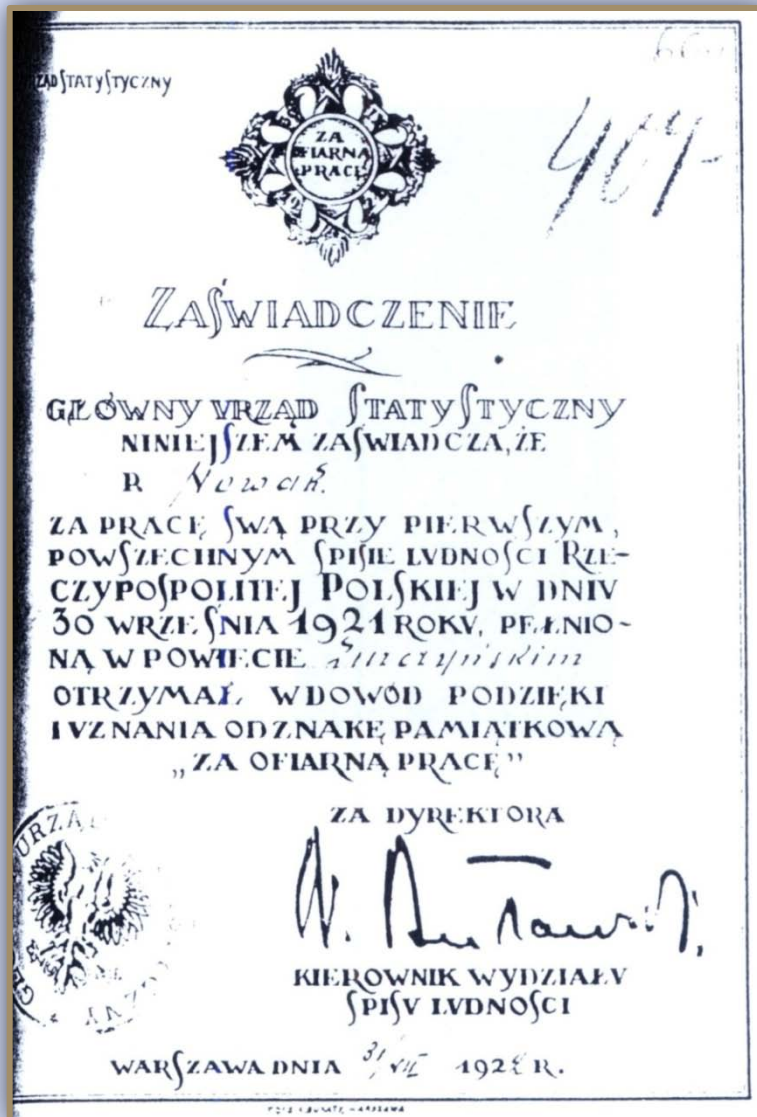 URZĄD STATYSTYCZNY
ZA
OFIARNĄ
PRACĘ
ZAŚWIADCZENIE
GŁÓWNY URZĄD STATYSTYCZNY
NINIEJSZEM ZAŚWIADCZA, ŻE
P. Nowak.
ZA PRACĘ SWĄ PRZY PIERWSZYM,
POWSZECHNYM SPISIE LUDNOŚCI RZE-
CZYPOSPOLITEJ POLSKIEJ W DNIU
30 WRZEŚNIA 1921 ROKU, PEŁNIO-
NĄ W POWIECIE
OTRZYMAŁ, W DOWÓD PODZIĘKI
I UZNANIA ODZNAKĘ PAMIĄTKOWĄ
„ZA OFIARNĄ PRACĘ”
ZA DYREKTORA
KIEROWNIK WYDZIAŁU
SPISU LUDNOŚCI
URZĄ
WARSZAWA DNIA 31/VII 1922 R.